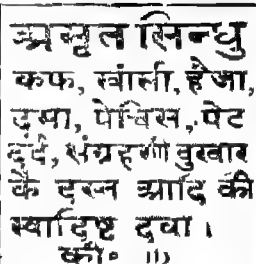 अमृत सिन्धु
कफ, खांसी, हैजा,
दमा, पेचिस, पेट
दर्द, संग्रहणी बुखार
के दस्त आदि की
स्वादिष्ट दवा ।
की० ॥)